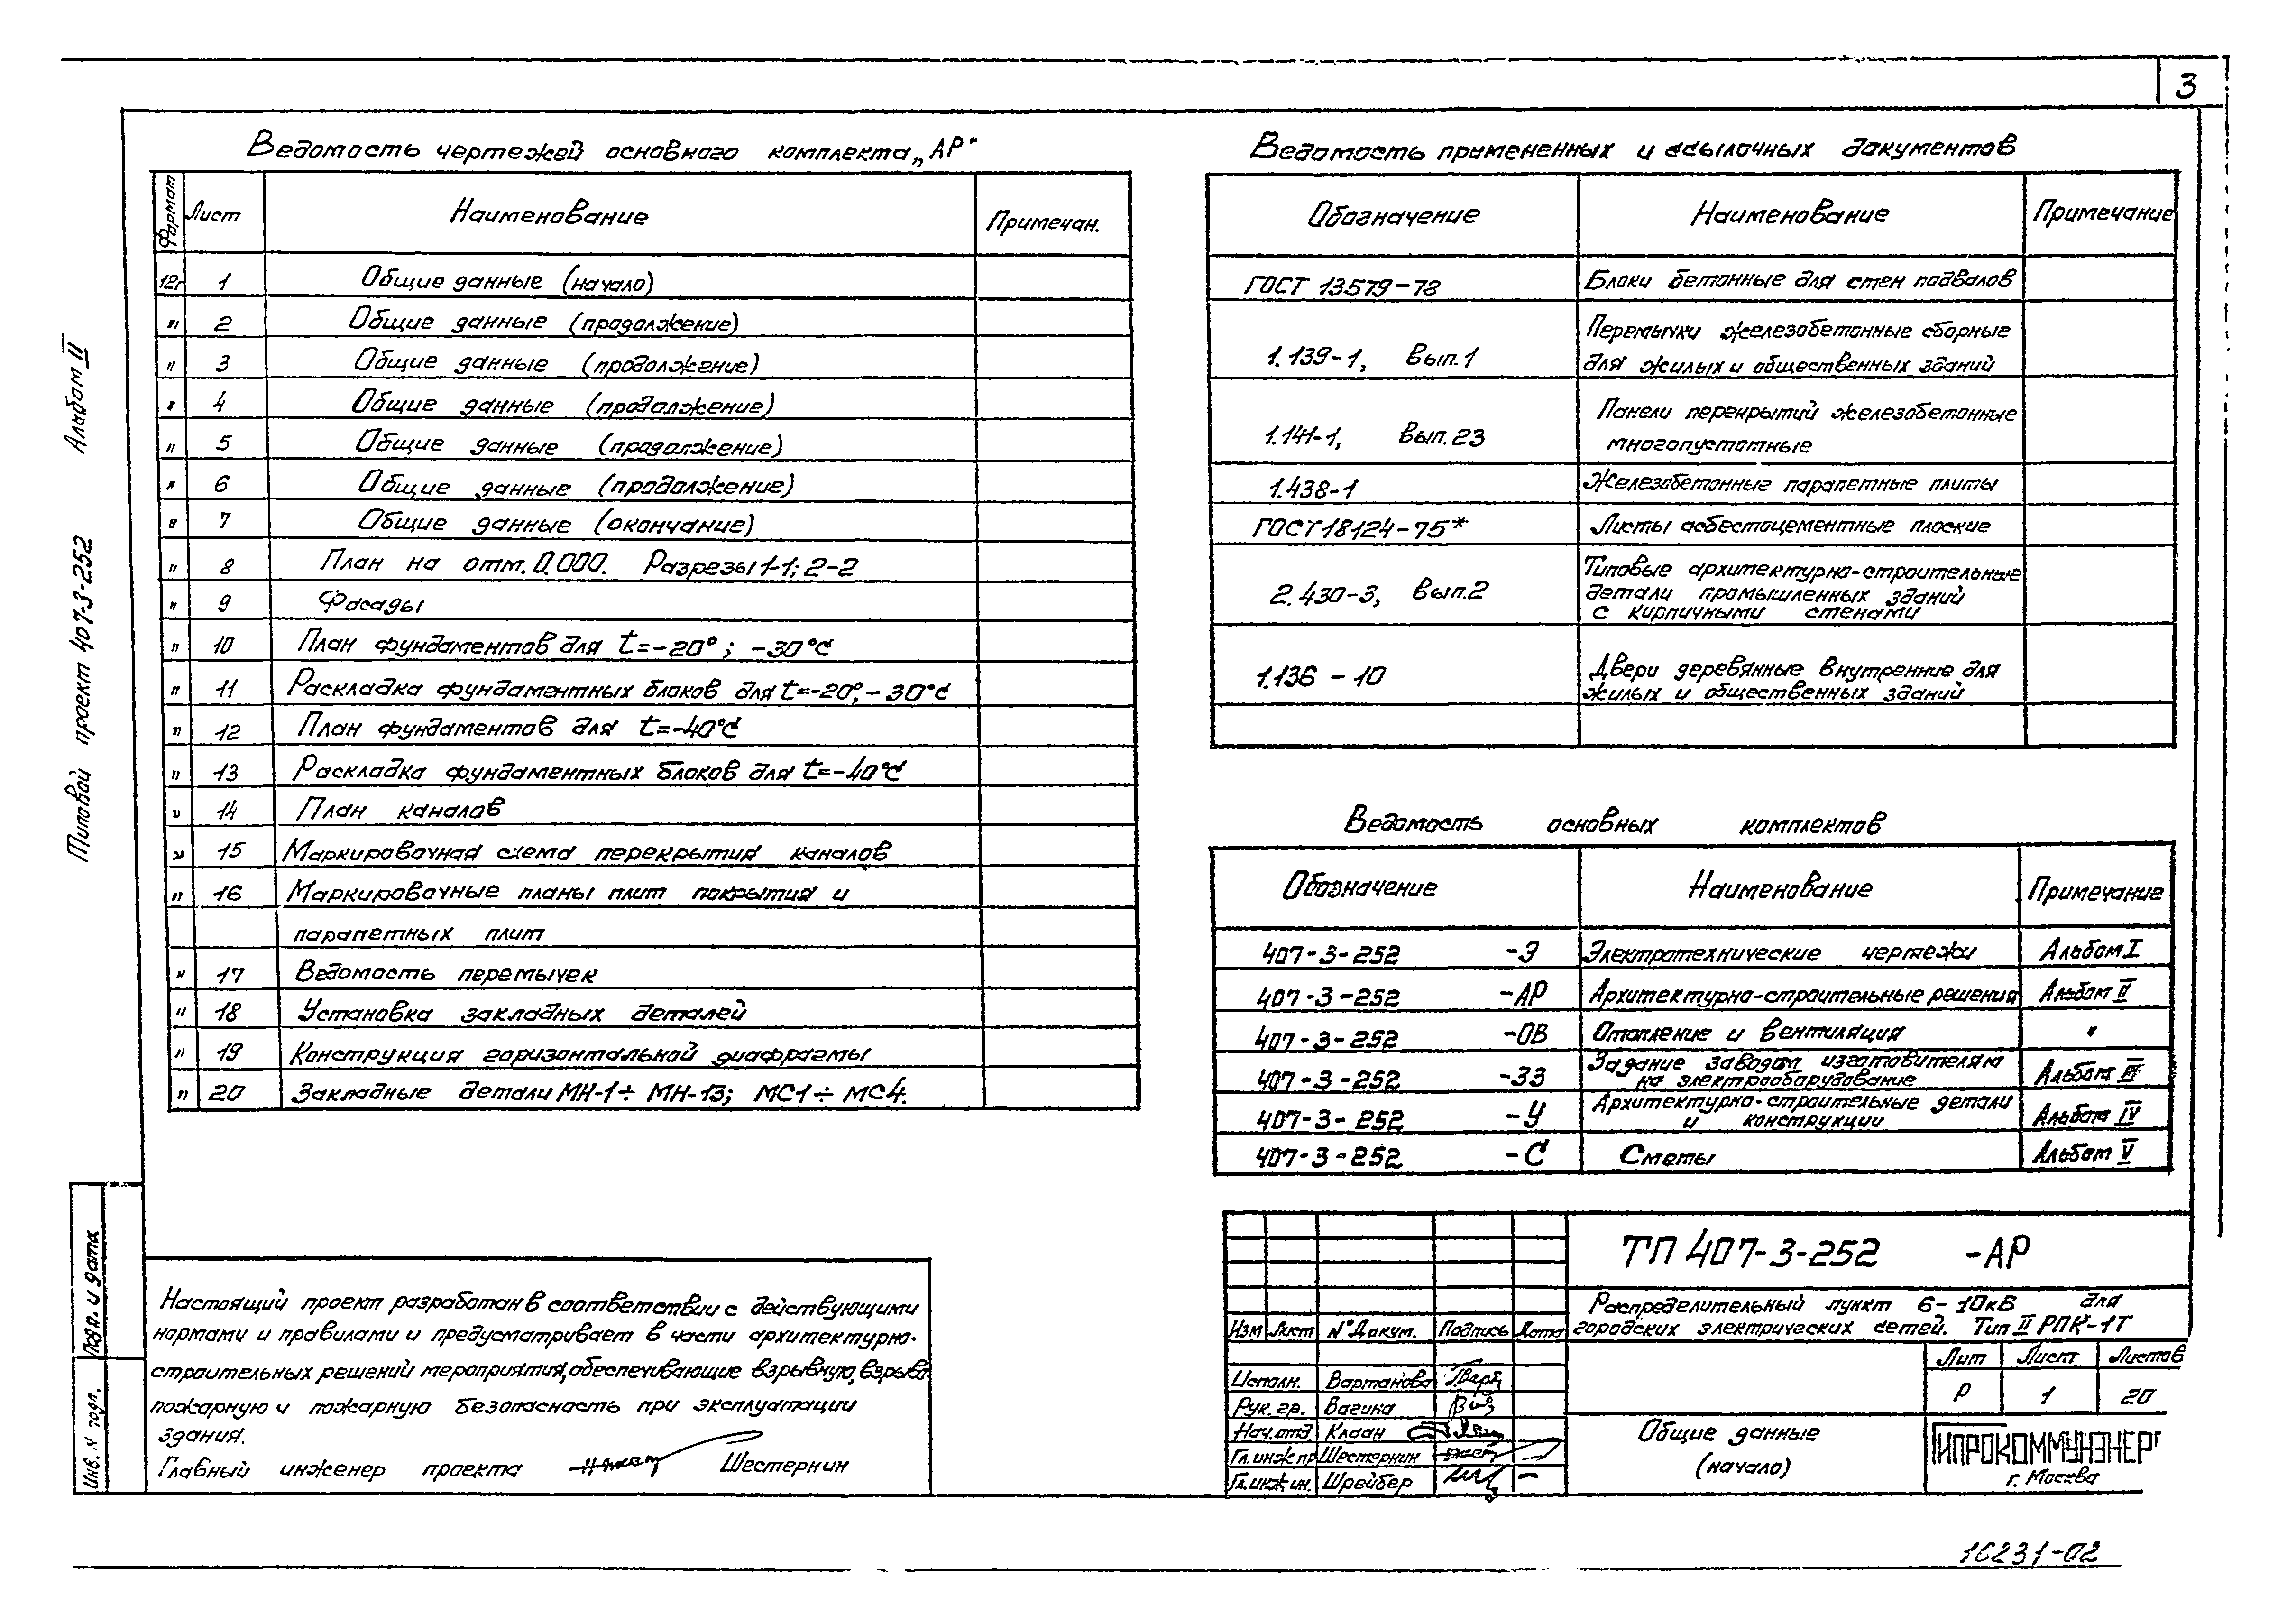 3
Ведомость чертежей основного комплекта „АР"
Формат Лист Наименование Примечан.
12г 1 Общие данные (начало)
" 2 Общие данные (продолжение)
" 3 Общие данные (продолжение)
" 4 Общие данные (продолжение)
" 5 Общие данные (продолжение)
" 6 Общие данные (продолжение)
" 7 Общие данные (окончание)
" 8 План на отм. 0.000. Разрезы 1-1; 2-2
" 9 Фасады
" 10 План фундаментов для t=-20°; -30°С
" 11 Раскладка фундаментных блоков для t=-20°, -30°С
" 12 План фундаментов для t=-40°С
" 13 Раскладка фундаментных блоков для t=-40°С
" 14 План каналов
" 15 Маркировочная схема перекрытия каналов
" 16 Маркировочные планы плит покрытия и
парапетных плит
" 17 Ведомость перемычек
" 18 Установка закладных деталей
" 19 Конструкция горизонтальной диафрагмы
" 20 Закладные детали МН-1÷ МН-13; МС1÷ МС4.
Ведомость примененных и ссылочных документов
Обозначение Наименование Примечание
ГОСТ 13579-78 Блоки бетонные для стен подвалов
1.139-1, Вып.1 Перемычки железобетонные сборные
для жилых и общественных зданий
1.141-1, Вып.23 Панели перекрытий железобетонные
многопустотные
1.438-1 Железобетонные парапетные плиты
ГОСТ 18124-75* Листы асбестоцементные плоские
2.430-3, Вып.2 Типовые архитектурно-строительные
детали промышленных зданий
с кирпичными стенами
1.136-10 Двери деревянные внутренние для
жилых и общественных зданий
Ведомость основных комплектов
Обозначение Наименование Примечание
407-3-252 -Э Электротехнические чертежи Альбом I
407-3-252 -АР Архитектурно-строительные решения Альбом II
407-3-252 -ОВ Отопление и вентиляция "
407-3-252 -ЗЗ Задание заводам изготовителям
на электрооборудование Альбом III
407-3-252 -У Архитектурно-строительные детали
и конструкции Альбом IV
407-3-252 -С Сметы Альбом V
Типовой проект 407-3-252 Альбом II
Подп. и дата
Инв. N подл.
Настоящий проект разработан в соответствии с действующими
нормами и правилами и предусматривает в части архитектурно-
строительных решений мероприятия, обеспечивающие взрывную, взрыво-
пожарную и пожарную безопасность при эксплуатации
здания.
Главный инженер проекта Шестернин
ТП 407-3-252 -АР
Распределительный пункт 6-10кВ для
городских электрических сетей. Тип II РПК-1Т
Изм Лист N°Докум. Подпись Дата
Исполн. Вартанова
Рук. гр. Вагина
Нач. отд. Клаан
Гл.инж пр Шестернин
Гл.инж ин. Шрейбер
Лит Лист Листов
Р 1 20
Общие данные
(начало)
ГИПРОКОММУНЭНЕРГ
г. Москва
16231-02